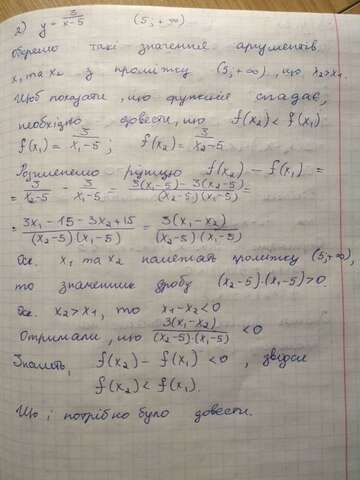 2) y = 3/(x-5) (5; +∞)
Оберемо такі значення аргументів
x₁ та x₂ з проміжку (5; +∞), що x₂>x₁.
Щоб показати, що функція спадає,
необхідно довести, що f(x₂) < f(x₁)
f(x₁) = 3/(x₁-5); f(x₂) = 3/(x₂-5)
Розглянемо різницю f(x₂) - f(x₁) =
= 3/(x₂-5) - 3/(x₁-5) = (3(x₁-5) - 3(x₂-5))/((x₂-5)(x₁-5)) =
= (3x₁ - 15 - 3x₂ + 15)/((x₂-5)(x₁-5)) = 3(x₁-x₂)/((x₂-5)(x₁-5))
Оск. x₁ та x₂ належать проміжку (5; +∞),
то знаменник дробу (x₂-5)·(x₁-5)>0.
Оск. x₂>x₁, то x₁-x₂<0
Отримали, що 3(x₁-x₂)/((x₂-5)·(x₁-5)) <0
Значить, f(x₂) - f(x₁) <0, звідси
f(x₂) < f(x₁).
Що і потрібно було довести.